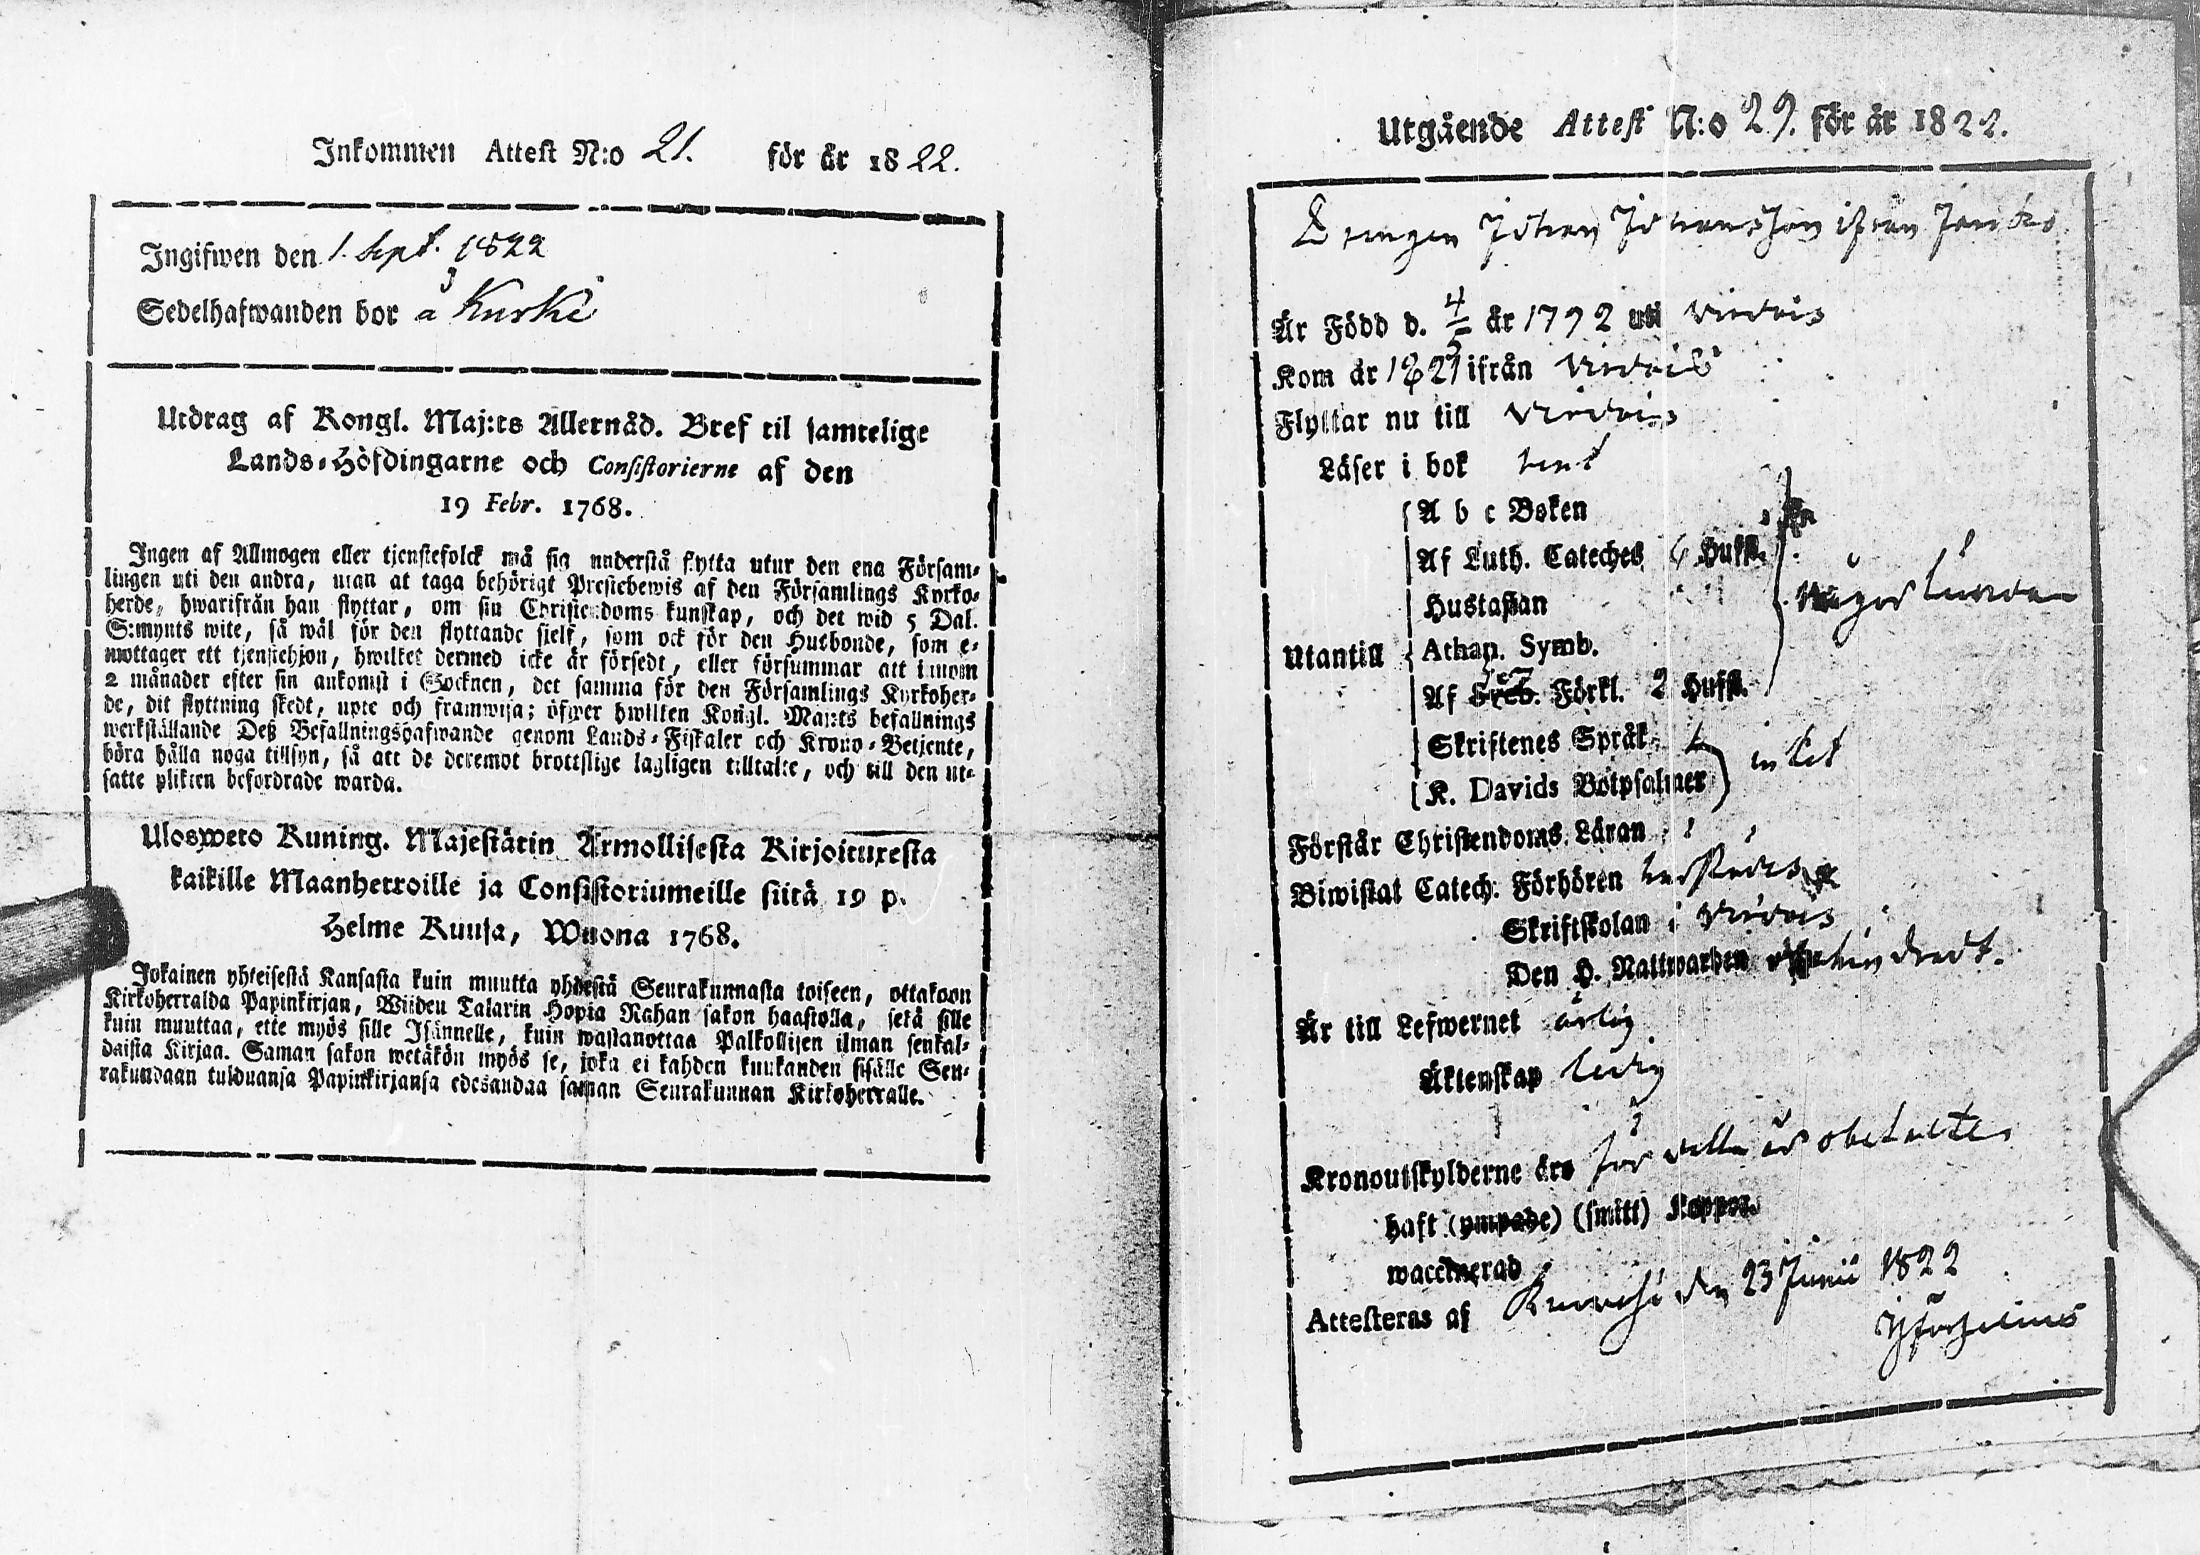 Inkommen Attest N:o 21. för år 1822.
Ingifwen den 1. Sept. 1822
Sedelhafwanden bor å Kurki
Utdrag af Kongl. Maj:ts Allernåd. Bref til samtelige
Lands-Höfdingarne och Consistorierne af den
19 Febr. 1768.
Ingen af Allmogen eller tjenstefolck må sig understå flytta utur den ena Försam-
lingen uti den andra, utan at taga behörigt Prestebewis af den Församlings Kyrko-
herde, hwarifrån han flyttar, om sin Christendoms kunskap, och det wid 5 Dal.
S:mynts wite, så wäl för den flyttande sjelf, som ock för den Husbonde, som e-
mottager ett tjenstehjon, hwilket dermed icke är försedt, eller försummar att inom
2 månader efter sin ankomst i Socknen, det samma för den Församlings Kyrkoher-
de, dit flyttning skedt, upte och framwisa; öfwer hwilken Kongl. Maj:ts befallnings
werkställande Deß Befallningshafwande genom Lands-Fiskaler och Krono-Betjente,
böra hålla noga tillsyn, så att de deremot brottslige lagligen tilltalte, och till den ut-
satte plikten befordrade warda.
Ulosweto Kuning. Majestätin Armollisesta Kirjoituxesta
kaikille Maanherroille ja Consistoriumeille siitä 19 p.
Helme Kuusa, Wuona 1768.
Jokainen yhteisestä Kansasta kuin muutta yhdestä Seurakunnasta toiseen, ottakoon
Kirkoherralda Papinkirjan, Wiiden Talarin Hopia Rahan sakon haastolla, sekä sille
kuin muuttaa, ette myös sille Isännelle, kuin wastanottaa Palkollisen ilman senkal-
daista Kirjaa. Saman sakon wetäkön myös se, joka ei kahden kuukanden sisälle Seu-
rakundaan tulduansa Papinkirjansa edesandaa saman Seurakunnan Kirkoherralle.
Utgående Attest N:o 29. för år 1822.
Drengen Johan Johansson ifrån
Är Född d. 4/5 år 1792 uti Virdois
Kom år 1821 ifrån Virdois
Flyttar nu till Virdois
Läser i bok rent
A b c Boken
Af Luth. Cateches 6 Hufst.
Hustaflan
någorlunda
Utantill Athan. Symb.
Af Förkl. 2 Hufst.
Skriftenes Språk
intet
K. Davids Botpsalmer
Förstår Christendoms Läran
Biwistat Catech. Förhören
Skriftskolan i Virdois
Den H. Nattwarden
Är till Lefwernet ärlig
Äktenskap ledig
Kronoutskylderne äro för detta år obetalte
haft (ympade) (smitt) Koppor
waccinerad
Attesteras af Ruovesi den 23 Junii 1822